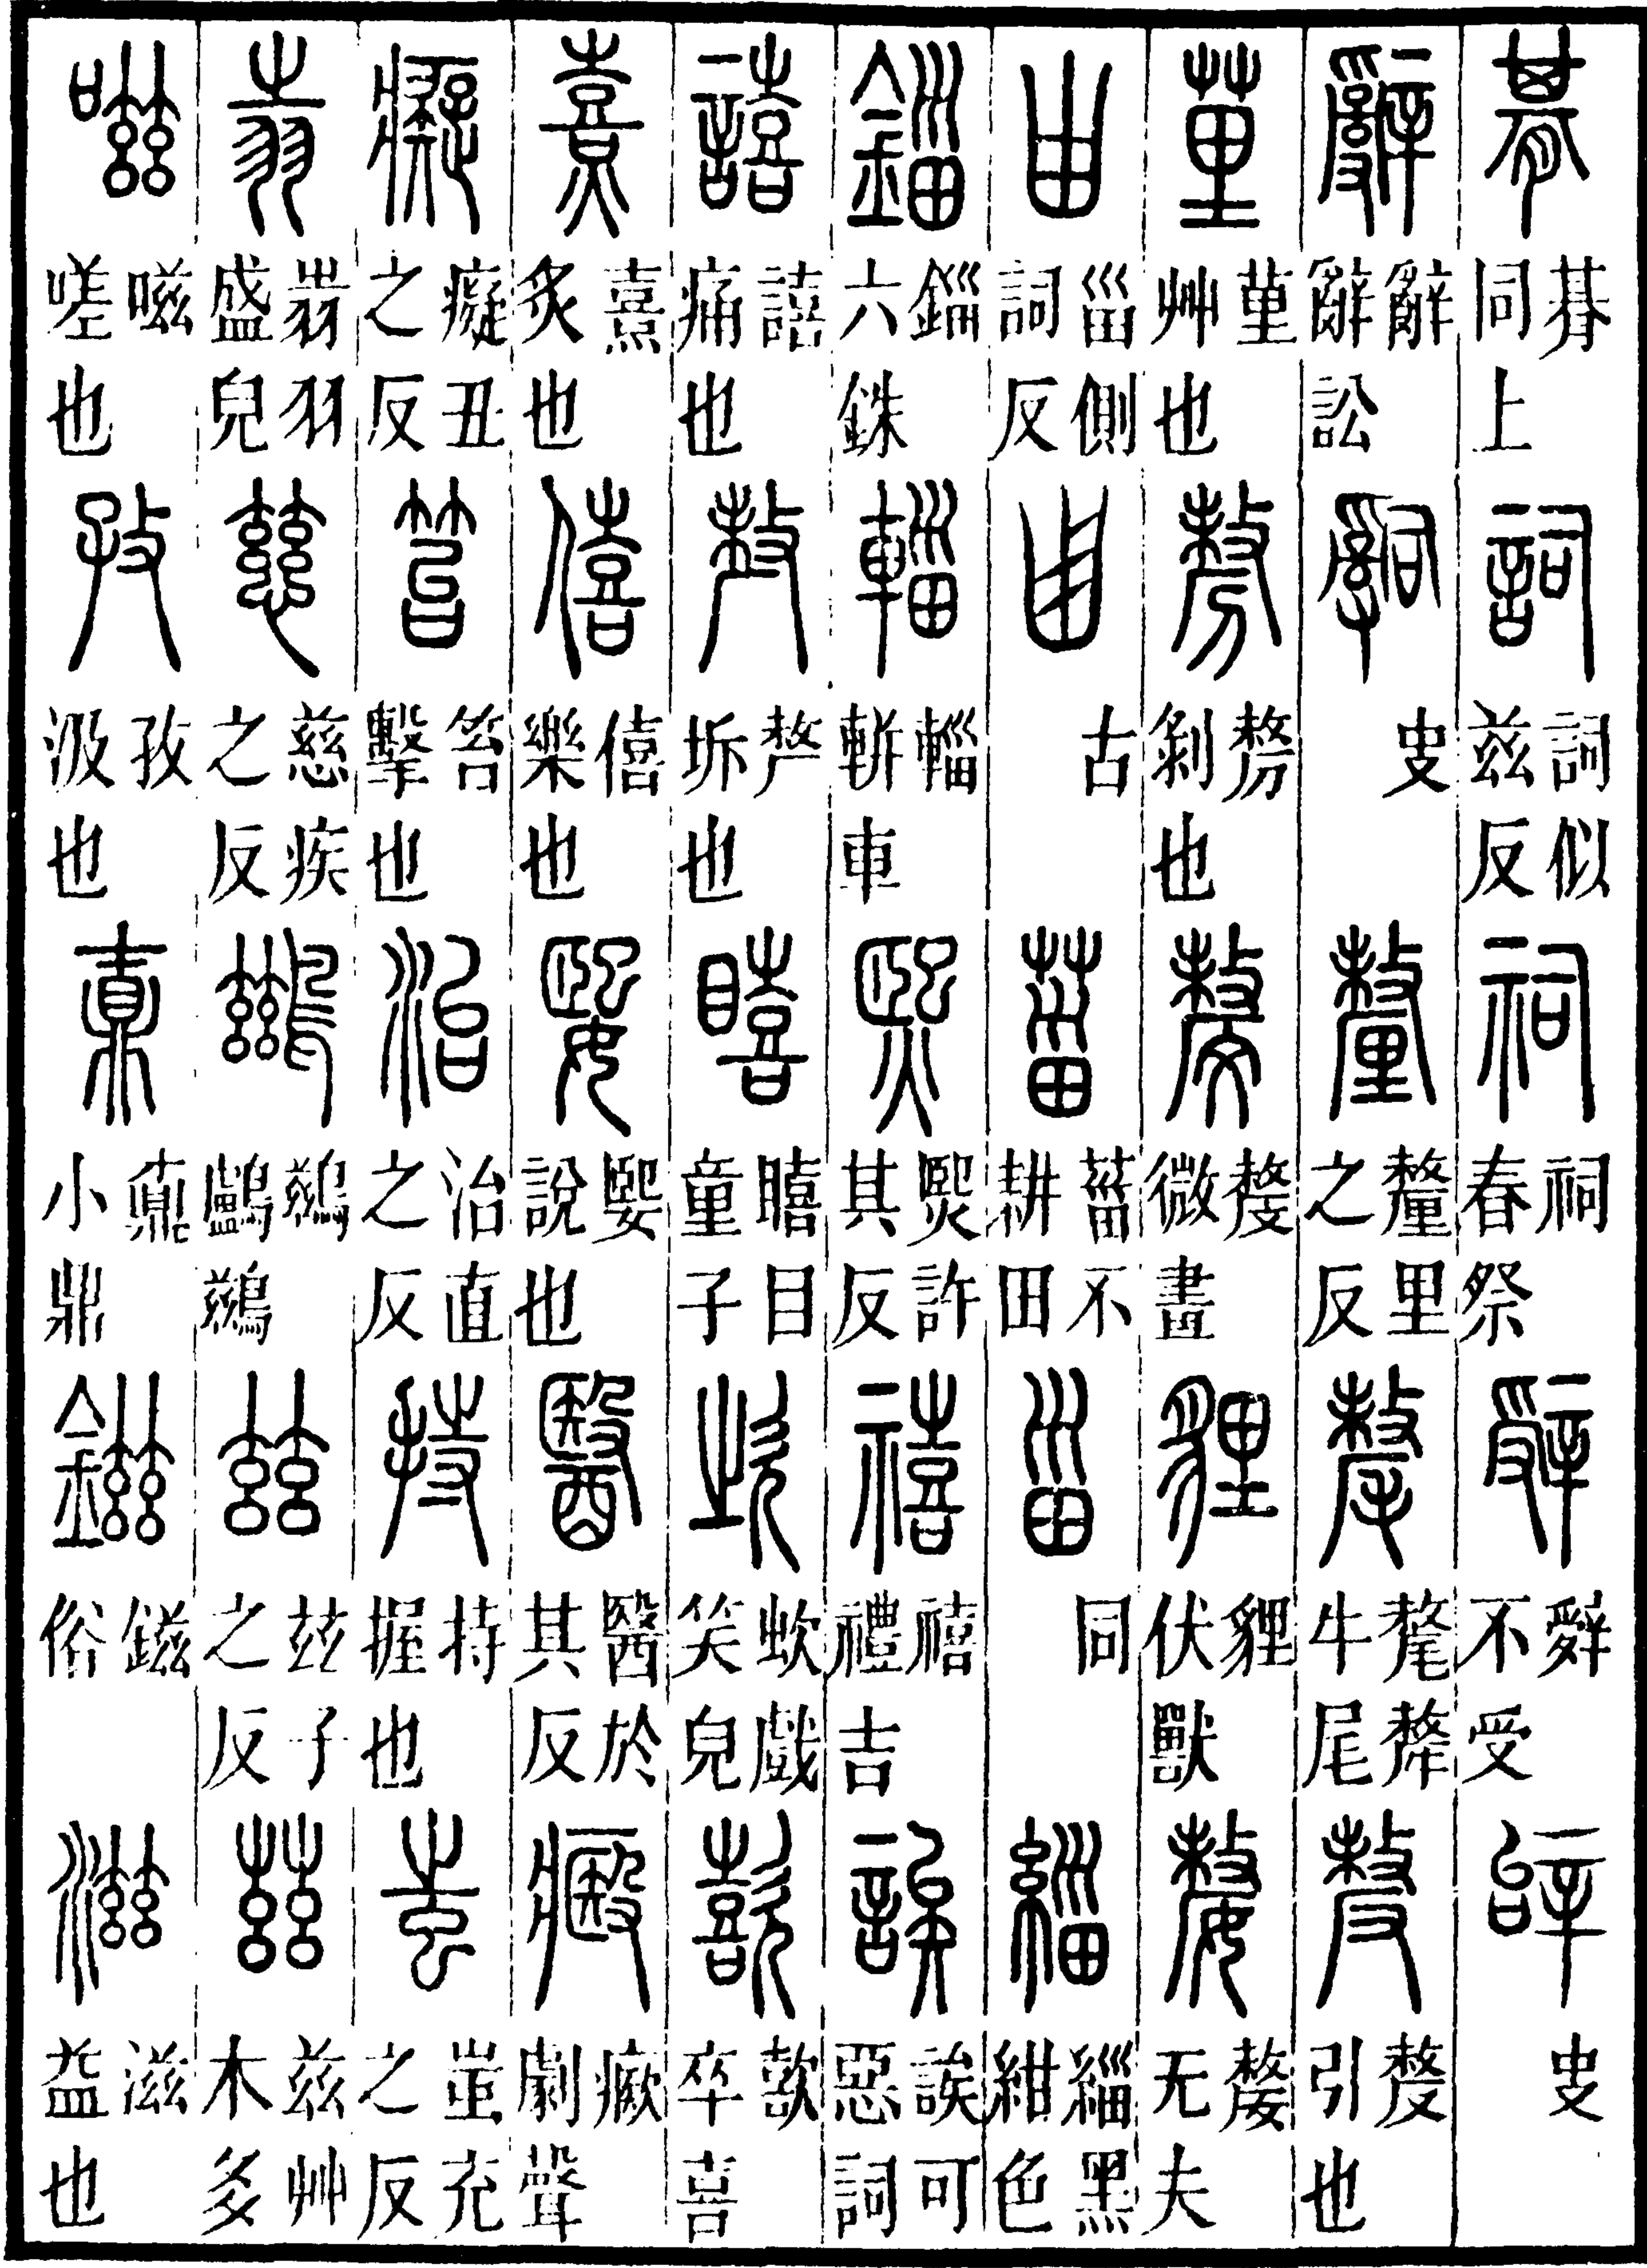 朞 朞同上 詞 詞似兹反 祠 祠春祭 辤 辤不受 辝 史
辭 辭辭訟 辭 史 釐 釐里之反 氂 氂犛牛尾 𠩺 𠩺引也
荲 荲艸也 剺 剺剝也 𢻹 𢻹微畫 貍 貍伏獸 嫠 嫠无夫
甾 甾側詞反 甾 古 菑 菑不耕田 甾 同 緇 緇黑紺色
錙 錙六銖 輜 輜軿車 熙 熙許其反 禧 禧禮吉 誒 誒可惡詞
譆 譆痛也 坼也 瞦 瞦目童子 㰞 㰞戲笑皃 歖 歖卒喜
熹 熹炙也 僖 僖樂也 媐 媐說也 醫 醫於其反 劇聲
癡 癡丑之反 笞 笞擊也 治 治直之反 持 持握也 蚩 蚩充之反
羽盛皃 慈 慈疾之反 鷀 鷀鸕鷀 兹 兹子之反 茲 茲艸木多
嗞 嗞嗟也 孜 孜汲也 鼒 鼒小鼎 鎡 鎡俗 滋 滋益也